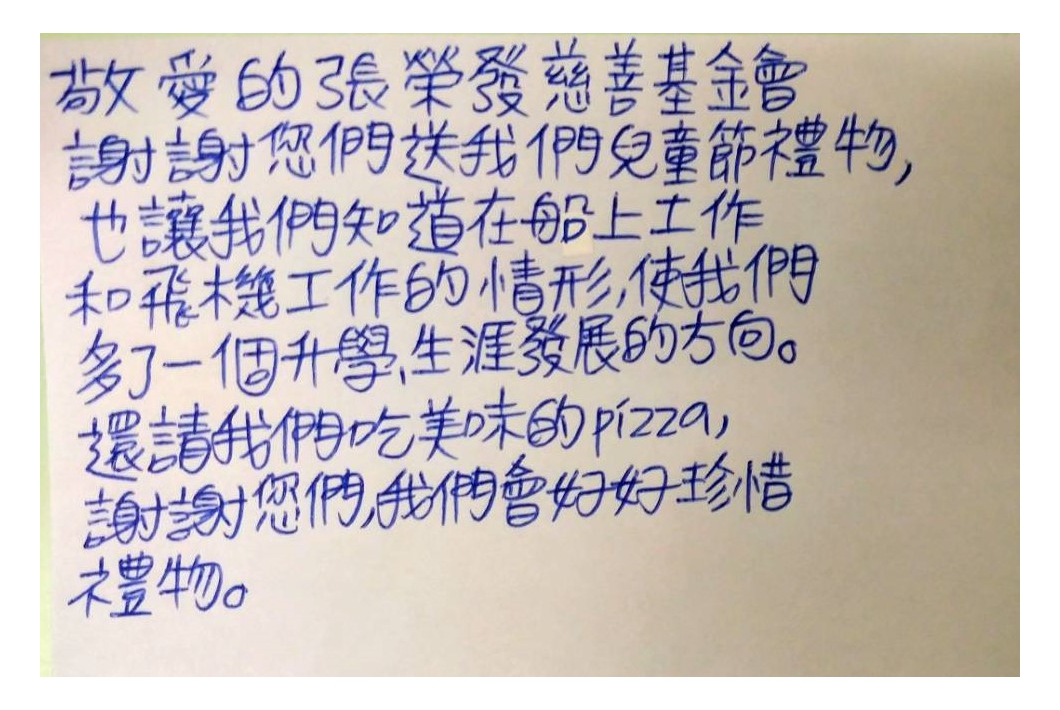 敬愛的張榮發慈善基金會
謝謝您們送我們兒童節禮物,
也讓我們知道在船上工作
和飛機工作的情形,使我們
多了一個升學、生涯發展的方向。
還請我們吃美味的pizza,
謝謝您們,我們會好好珍惜
禮物。